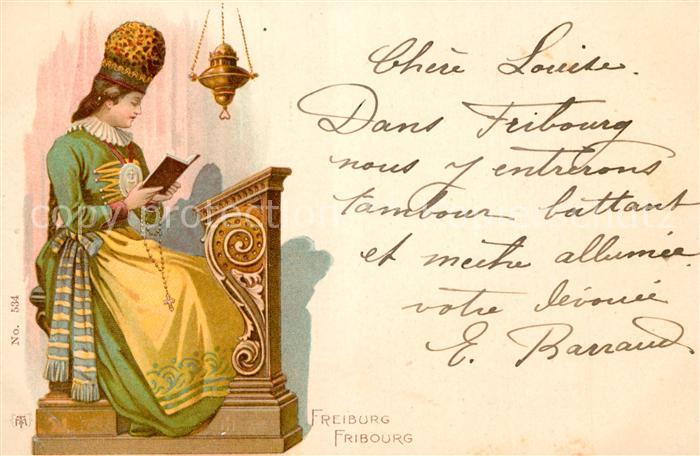 Chère Louise.
Dans Fribourg
nous y entrerons
tambour battant
et mèche allumée
votre dévouée
E. Barraud.
No. 534
FREIBURG
FRIBOURG